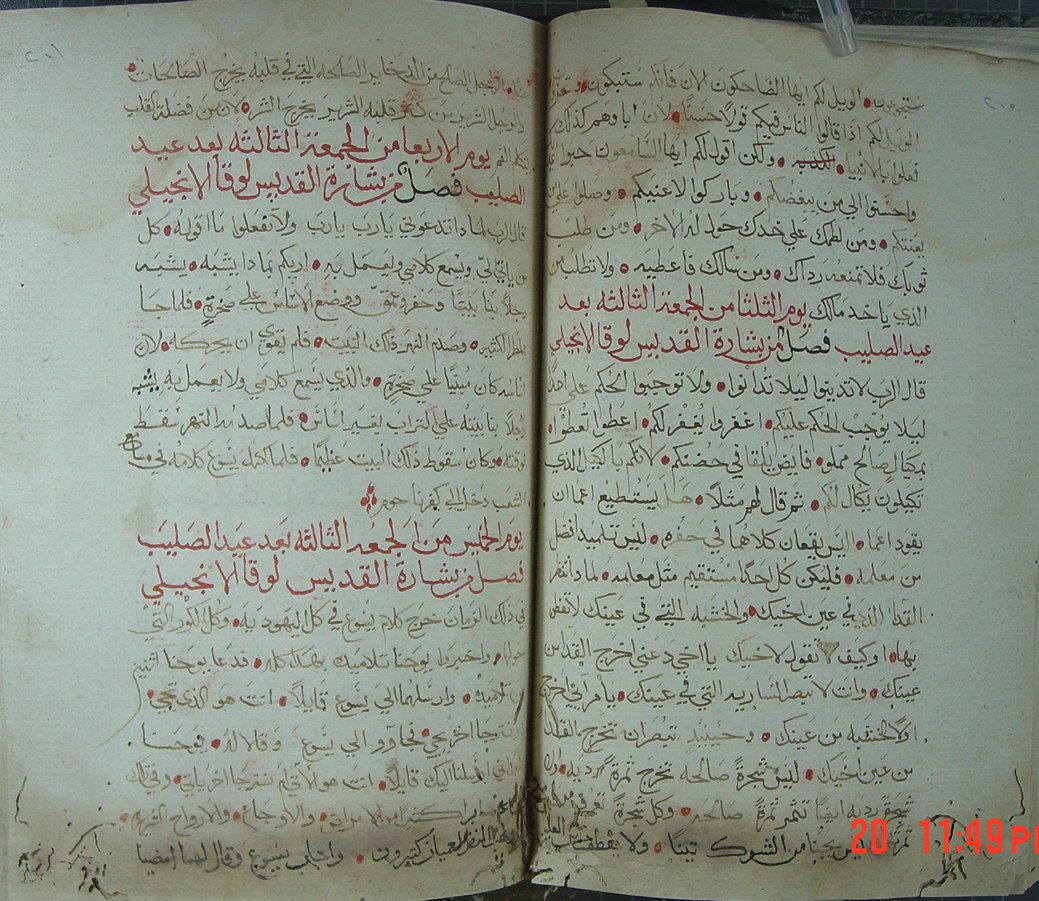 ستجوعون • الويل لكم ايها الضاحكون لان فانكم ستبكون • وتحزنون
الويل لكم اذا قالوا الناس فيكم قولاً حسناً • لان اباوهم كذلك
فعلوا بالانبيا الكذبه • ولكن اقول لكم ايها السامعون حبوا
واحسنوا الي من يبغضكم • وباركوا لاعنيكم • وصلوا علي من
يعنتكم • ومن لطمك علي خدك حول له الاخر • ومن طلب
ثوبك فلا تمنعه رداك • ومن سالك فاعطيه • ولا تطلب من
الذي ياخد مالك يوم الثلثا من الجمعة الثالثه بعد
عيد الصليب فصل من بشارة القديس لوقا الانجيلي
قال الرب لا تدينوا ليلا تدانوا • ولا توجبوا الحكم علي احداً
ليلا يوجب الحكم عليكم • اغفروا يغفر لكم • اعطوا تعطوا •
بمكيال صالح مملو • فايض يلقا في حضنكم • لانكم بالكيل الذي
تكيلون يكال لكم • ثم قال لهم مثلاً • هل يستطيع اعما ان
يقود اعما • اليس يقعان كلاهما في حفره • ليس تلميد افضل
من معلمه • فليكن كل احداً مستقيم مثل معلمه • لماذا تنظر
القدا الذي في عين اخيك • والخشبه التي في عينك لا تفطن
بها • او كيف تقول لاخيك يا اخي دعني اخرج القدا من
عينك • وانت لا تبصر الساريه التي في عينك • يا مرآيي اخرج
اولاً الخشبه من عينك • وحينيد تبصر ان تخرج القدا
من عين اخيك • ليس شجرةً صالحه تخرج ثمرةً رديه • ولا
شجرة رديه ايضاً تثمر ثمرةً صالحه • وكل شجرةً تعرف من
ثمرتها ليس يجنا من الشوك تيناً • ولا يقطف من العليق
الرجل الصالح من الدخاير الصالحه التي في قلبه يخرج الصالحات •
والرجل الشرير من كنز قلبه الشرير يخرج الشر • لان من فضلة القلب
يتكلم الفم يوم الاربعا من الجمعة الثالثه بعد عيد
الصليب فصل من بشارة القديس لوقا الانجيلي
قال الرب لماذا تدعوني يارب يارب ولا تفعلوا ما اقوله • كل
من ياتي الي ويسمع كلامي ويعمل به • اريكم بماذا يشبه • يشبه
رجلاً بنا بيتاً وحفر وعمق ووضع الاساس علي صخرةٍ • فلما جا
المطر الكثير • وصدم النهر ذلك البيت • فلم يقوي ان يحركه • لان
اساسه كان مبنياً علي صخرةٍ • والذي يسمع كلامي ولا يعمل به يشبه
رجلاً بنا بيته علي التراب بغير اساس • فلما صدمه النهر سقط
لوقته • وكان سقوط ذلك البيت عظيماً • فلما اكمل يسوع كلامه في مسامع
الشعب دخل الي كفرناحوم •
يوم الخميس من الجمعه الثالثه بعد عيد الصليب
فصل من بشارة القديس لوقا الانجيلي
في ذلك الزمان خرج كلام يسوع في كل اليهوديه • وكل الكور التي
حولها • واخبروا يوحنا تلاميده بهدا كله • فدعا يوحنا اثنين
من تلاميده • وارسلهما الي يسوع قايلاً • انت هو الذي تجي
او نترجا اخر يجي • فجاوو الي يسوع وقالا له • يوحنا
ارسلنا اليك قايلاً • انت هو الاتي ام نترجا اخر ياتي • وفي تلك
ابرا كثير من الامراض • والاوجاع • والارواح الشريره •
ووهب النظر لعميان كثيرون • واجاب يسوع وقال لهما امضيا
20 11:49 PM